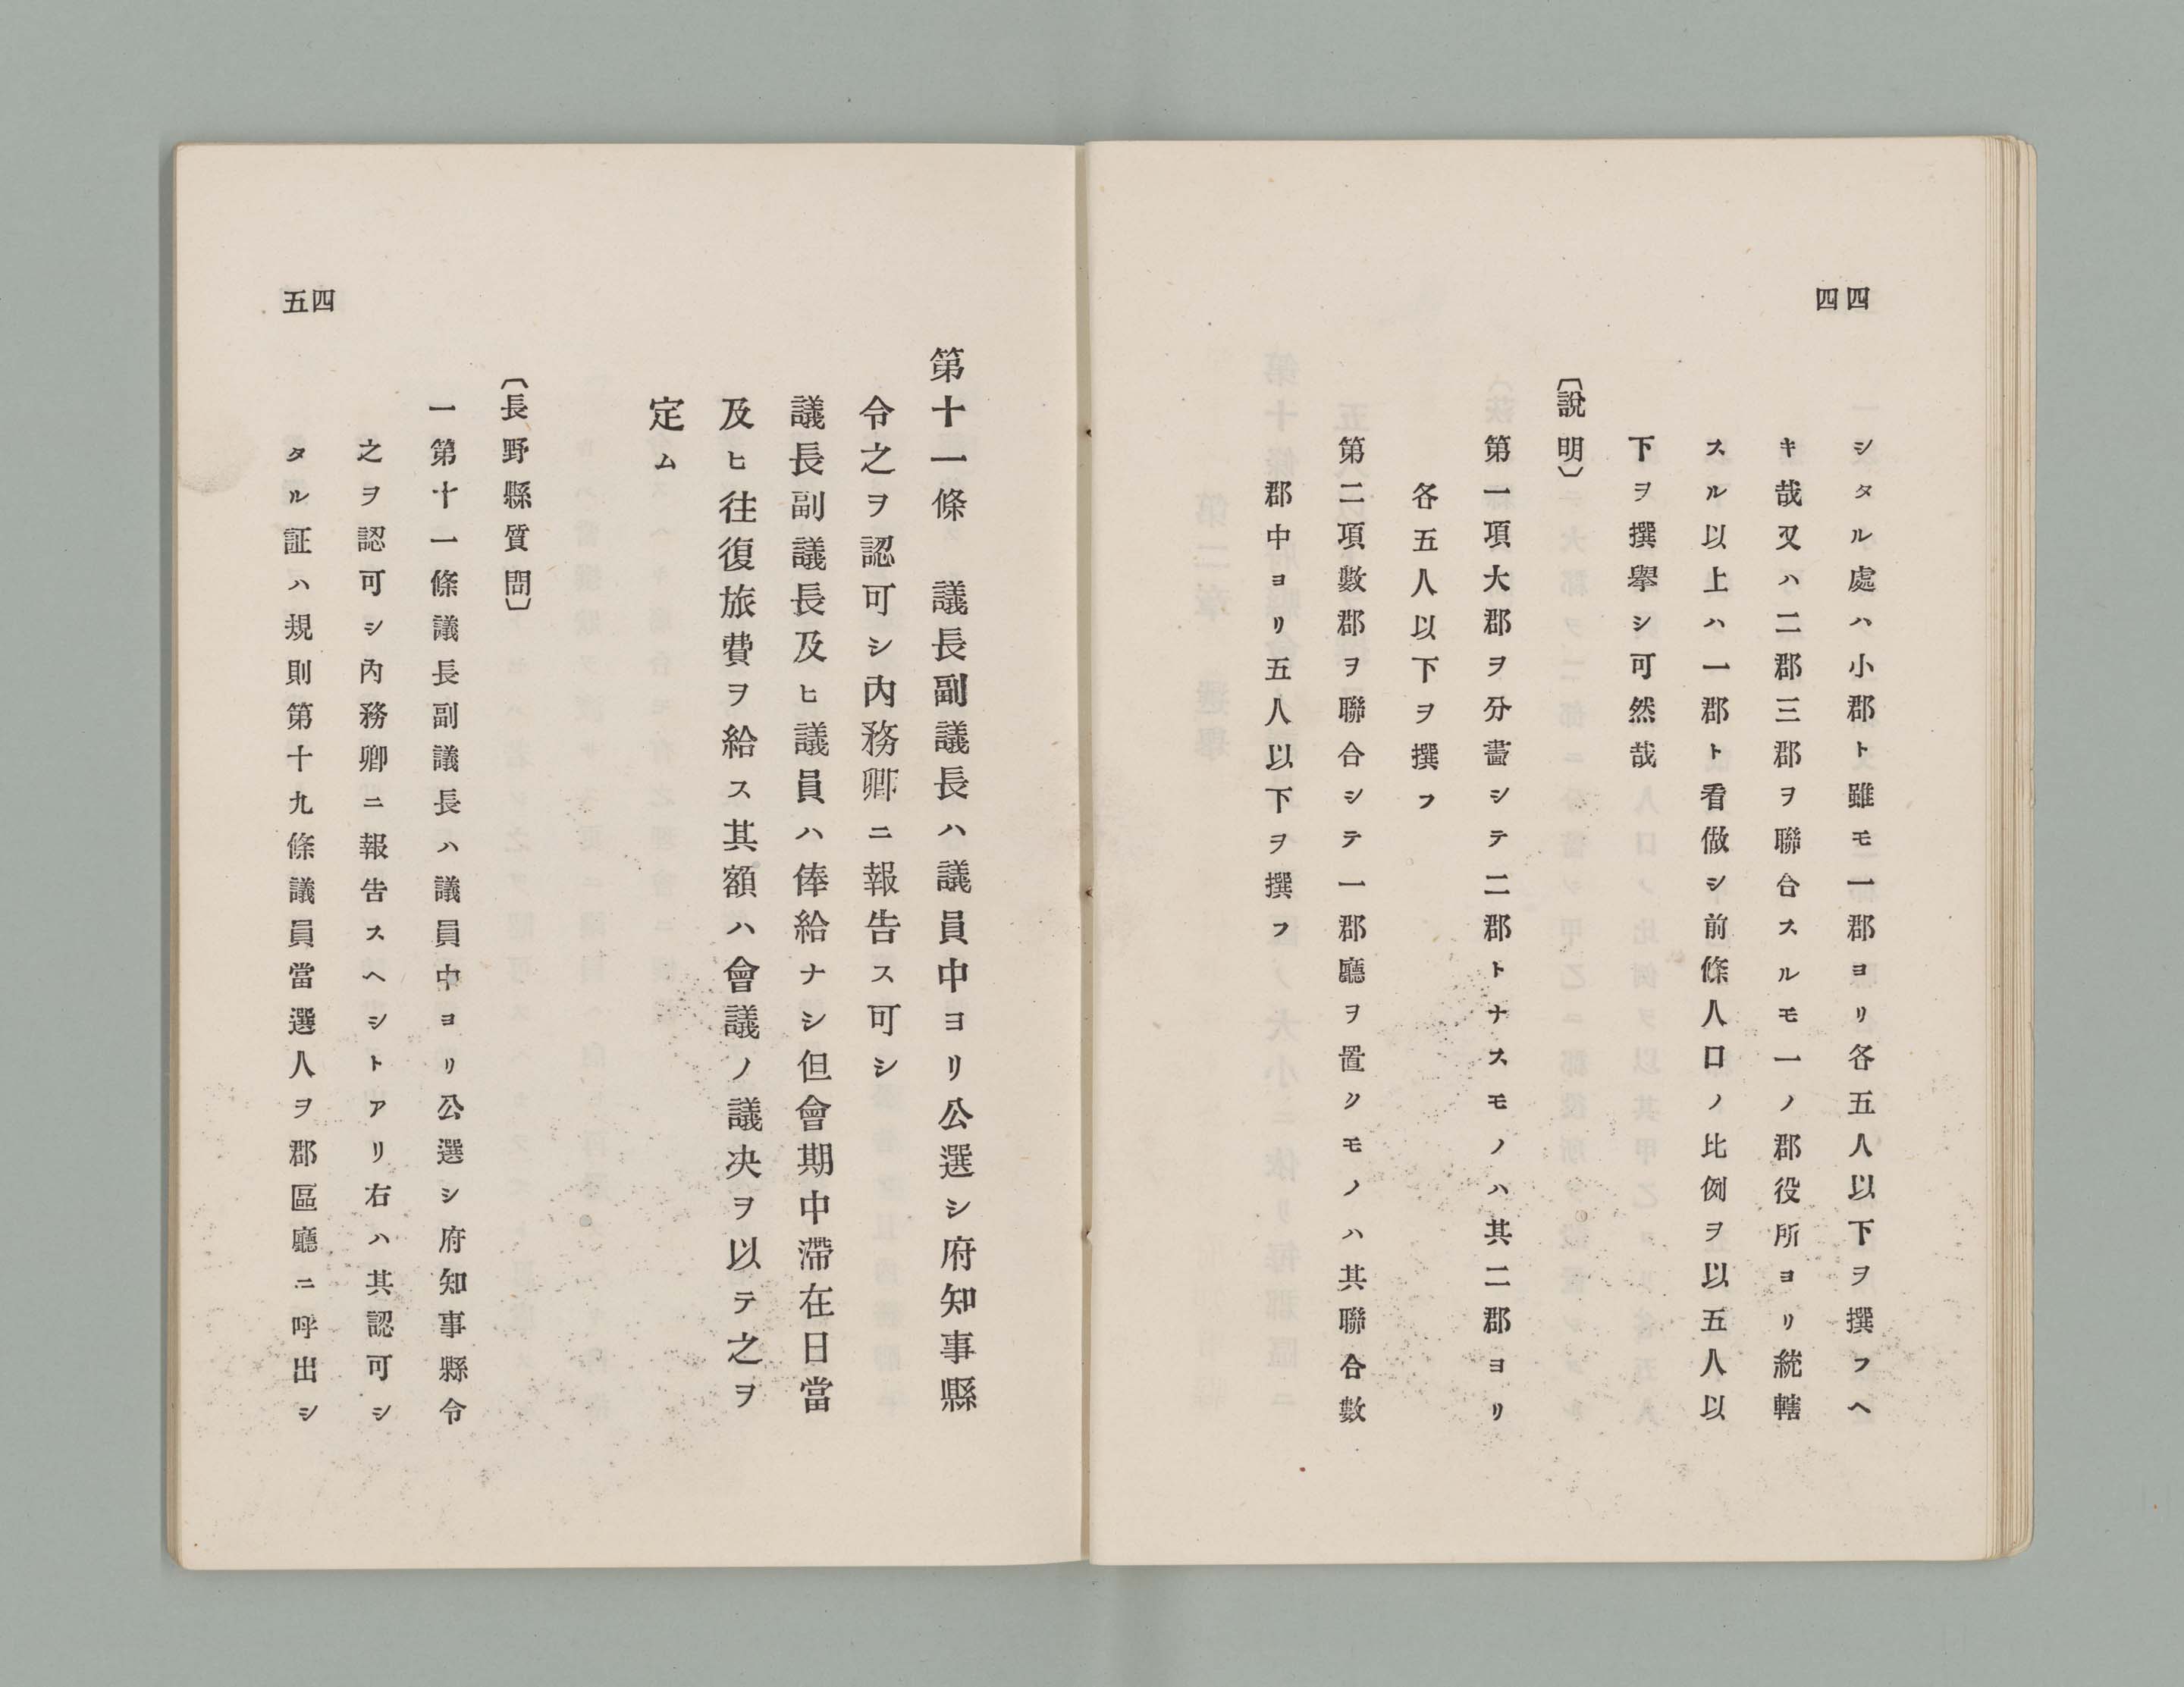 四四
シタル處ハ小郡ト雖モ一郡ヨリ各五人以下ヲ撰フヘ
キ哉又ハ二郡三郡ヲ聯合スルモ一ノ郡役所ヨリ統轄
スル以上ハ一郡ト看做シ前條人口ノ比例ヲ以五人以
下ヲ撰擧シ可然哉
〔說明〕
第一項大郡ヲ分畵シテ二郡トナスモノハ其二郡ヨリ
各五人以下ヲ撰フ
第二項數郡ヲ聯合シテ一郡廳ヲ置クモノハ其聯合數
郡中ヨリ五人以下ヲ撰フ
四五
第十一條　議長副議長ハ議員中ヨリ公選シ府知事縣
令之ヲ認可シ內務卿ニ報告ス可シ
議長副議長及ヒ議員ハ俸給ナシ但會期中滯在日當
及ヒ往復旅費ヲ給ス其額ハ會議ノ議決ヲ以テ之ヲ
定ム
〔長野縣質問〕
一第十一條議長副議長ハ議員中ヨリ公選シ府知事縣令
之ヲ認可シ內務卿ニ報告スヘシトアリ右ハ其認可シ
タル証ハ規則第十九條議員當選人ヲ郡區廳ニ呼出シ